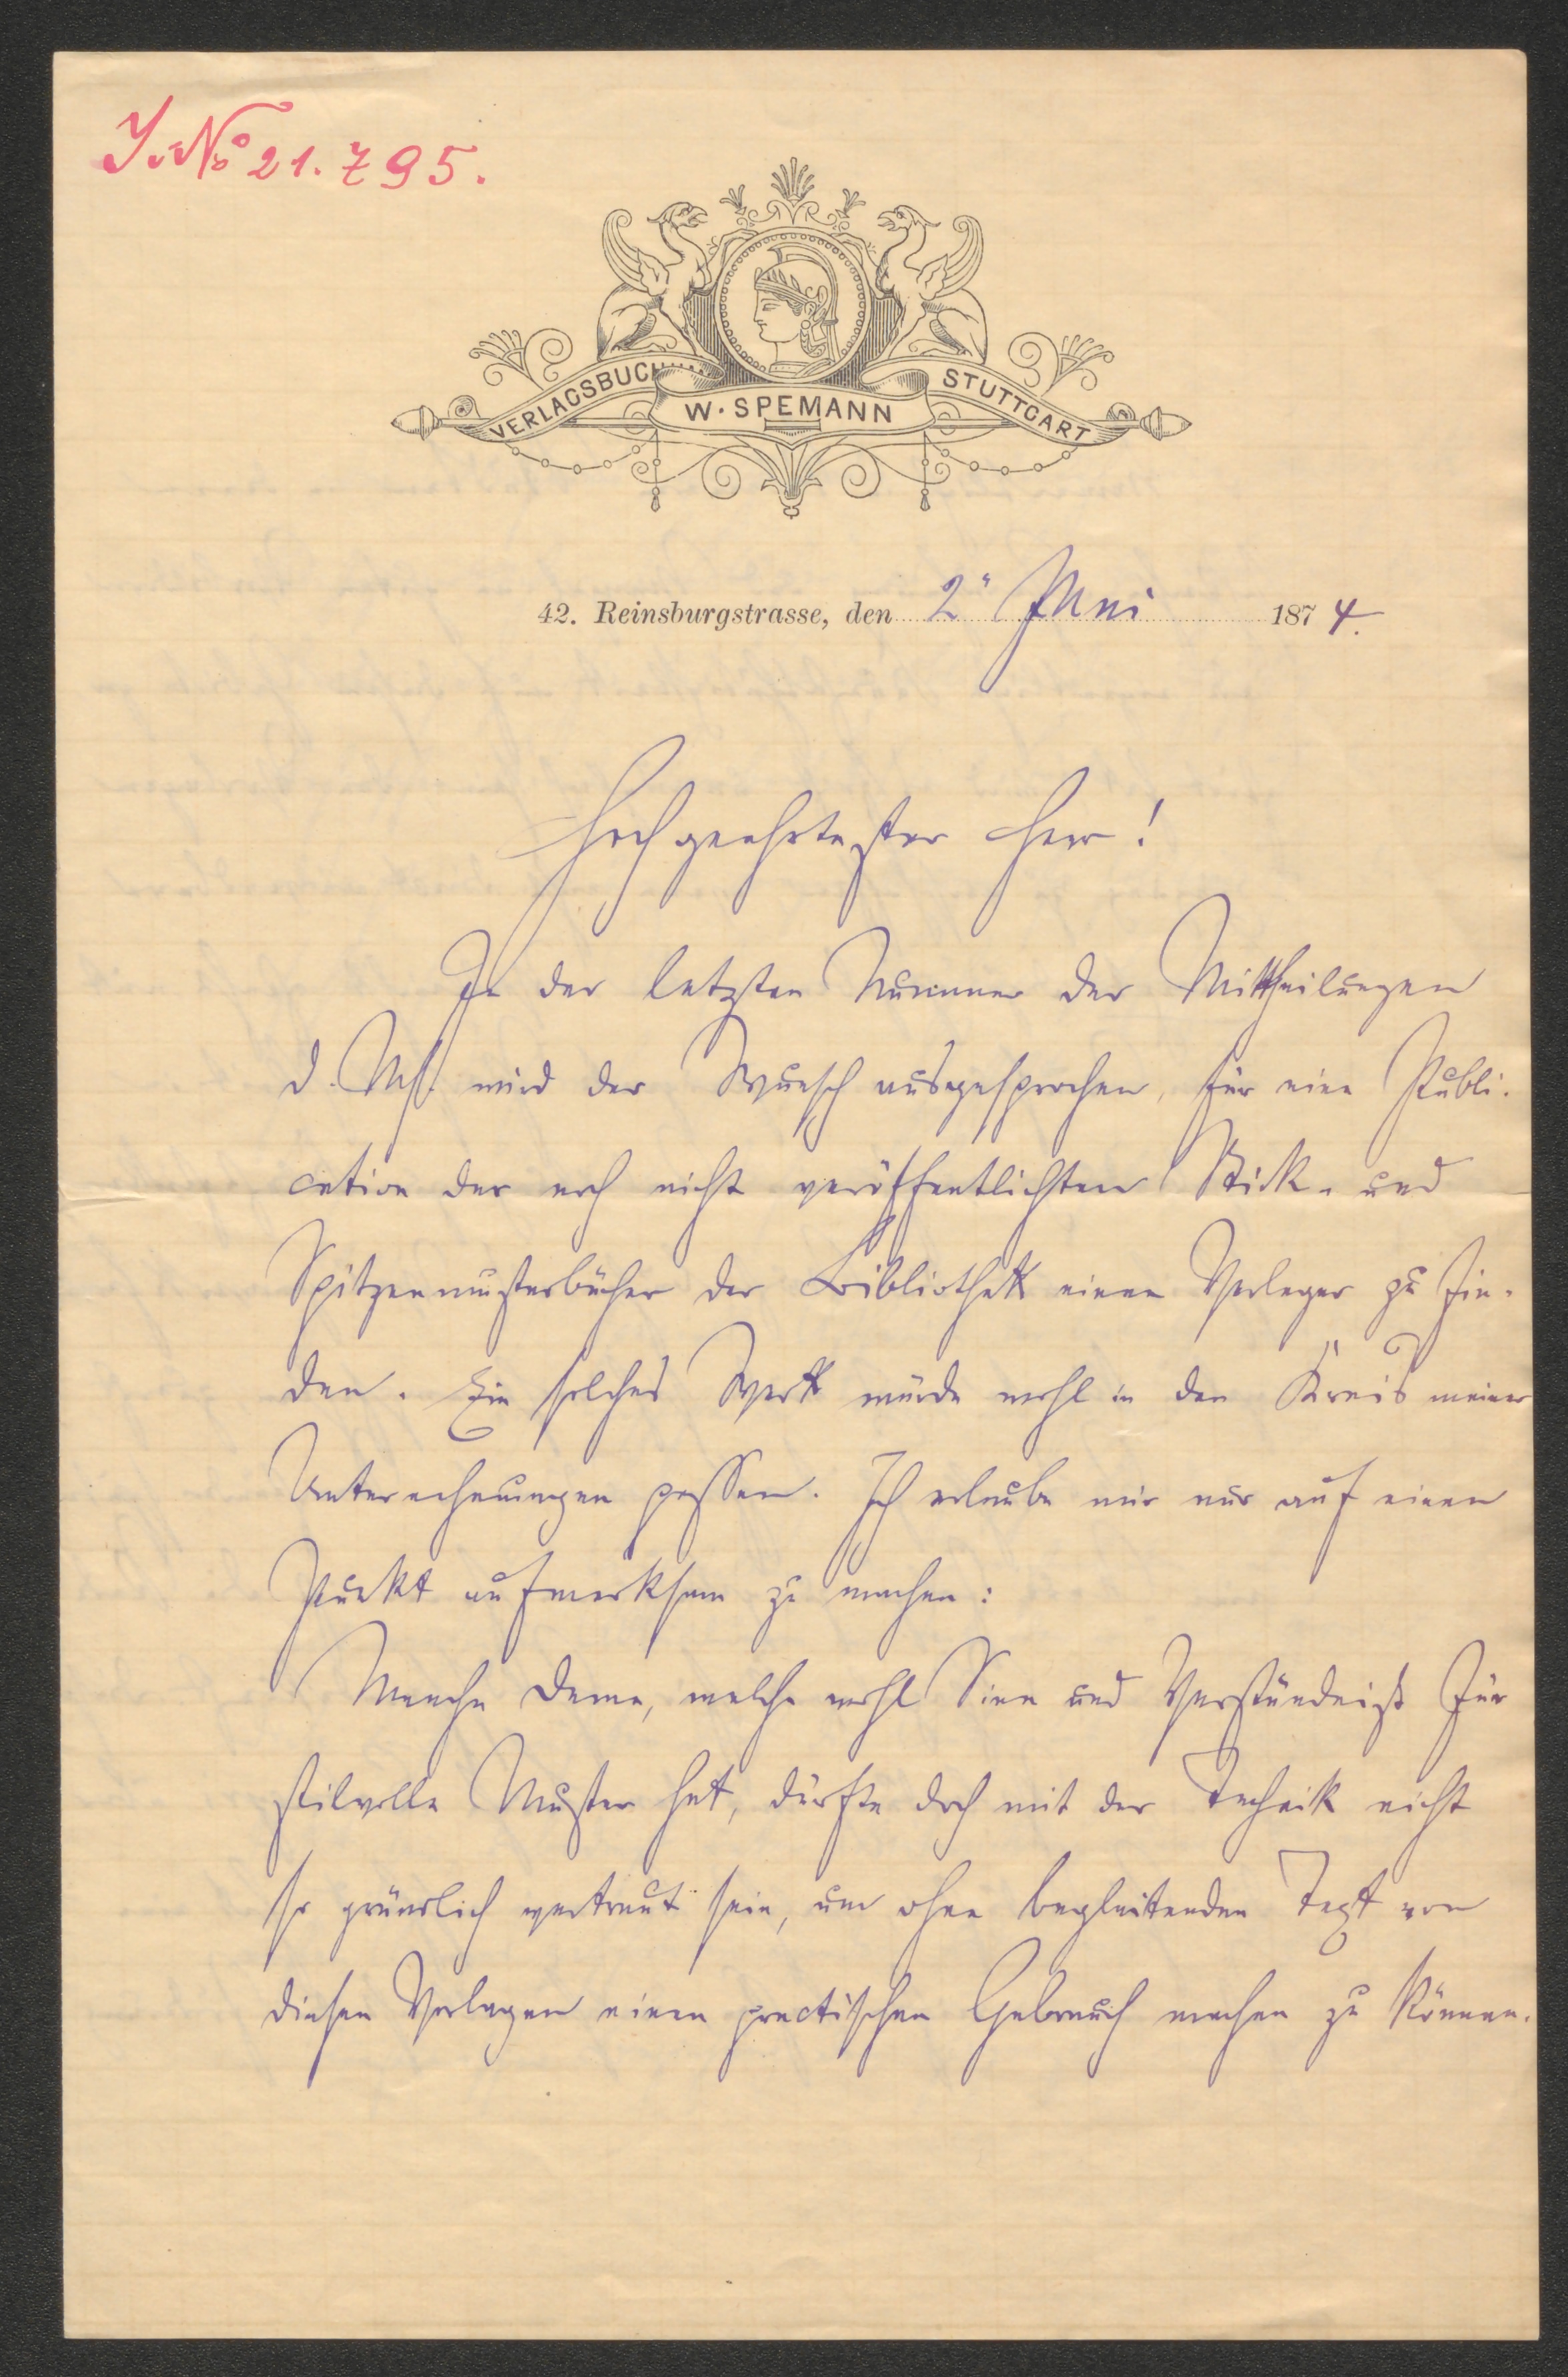 J. No 21.795.
VERLAGSBUCH
W. SPEMANN
STUTTGART
42. Reinsburgstrasse, den 2" Juni 1874.
Hochgeehrtester Herr!
In der letzten Nummer der Mittheilungen
d. Ms. wird der Wunsch ausgesprochen, für eine Publi-
cation der noch nicht veröffentlichten Stick- und
Spitzenmusterbücher der Bibliothek einen Verleger zu fin-
den. Ein solches Werk würde wohl in den Kreis meiner
Unternehmungen passen. Ich erlaube mir nur auf einen
Punkt aufmerksam zu machen:
Manche Dame, welche wohl Sinn und Verständniß für
stilvolle Muster hat, dürfte doch mit der Technik nicht
so gründlich vertraut sein, um ohne begleitenden Text von
diesen Vorlagen einen practischen Gebrauch machen zu können.